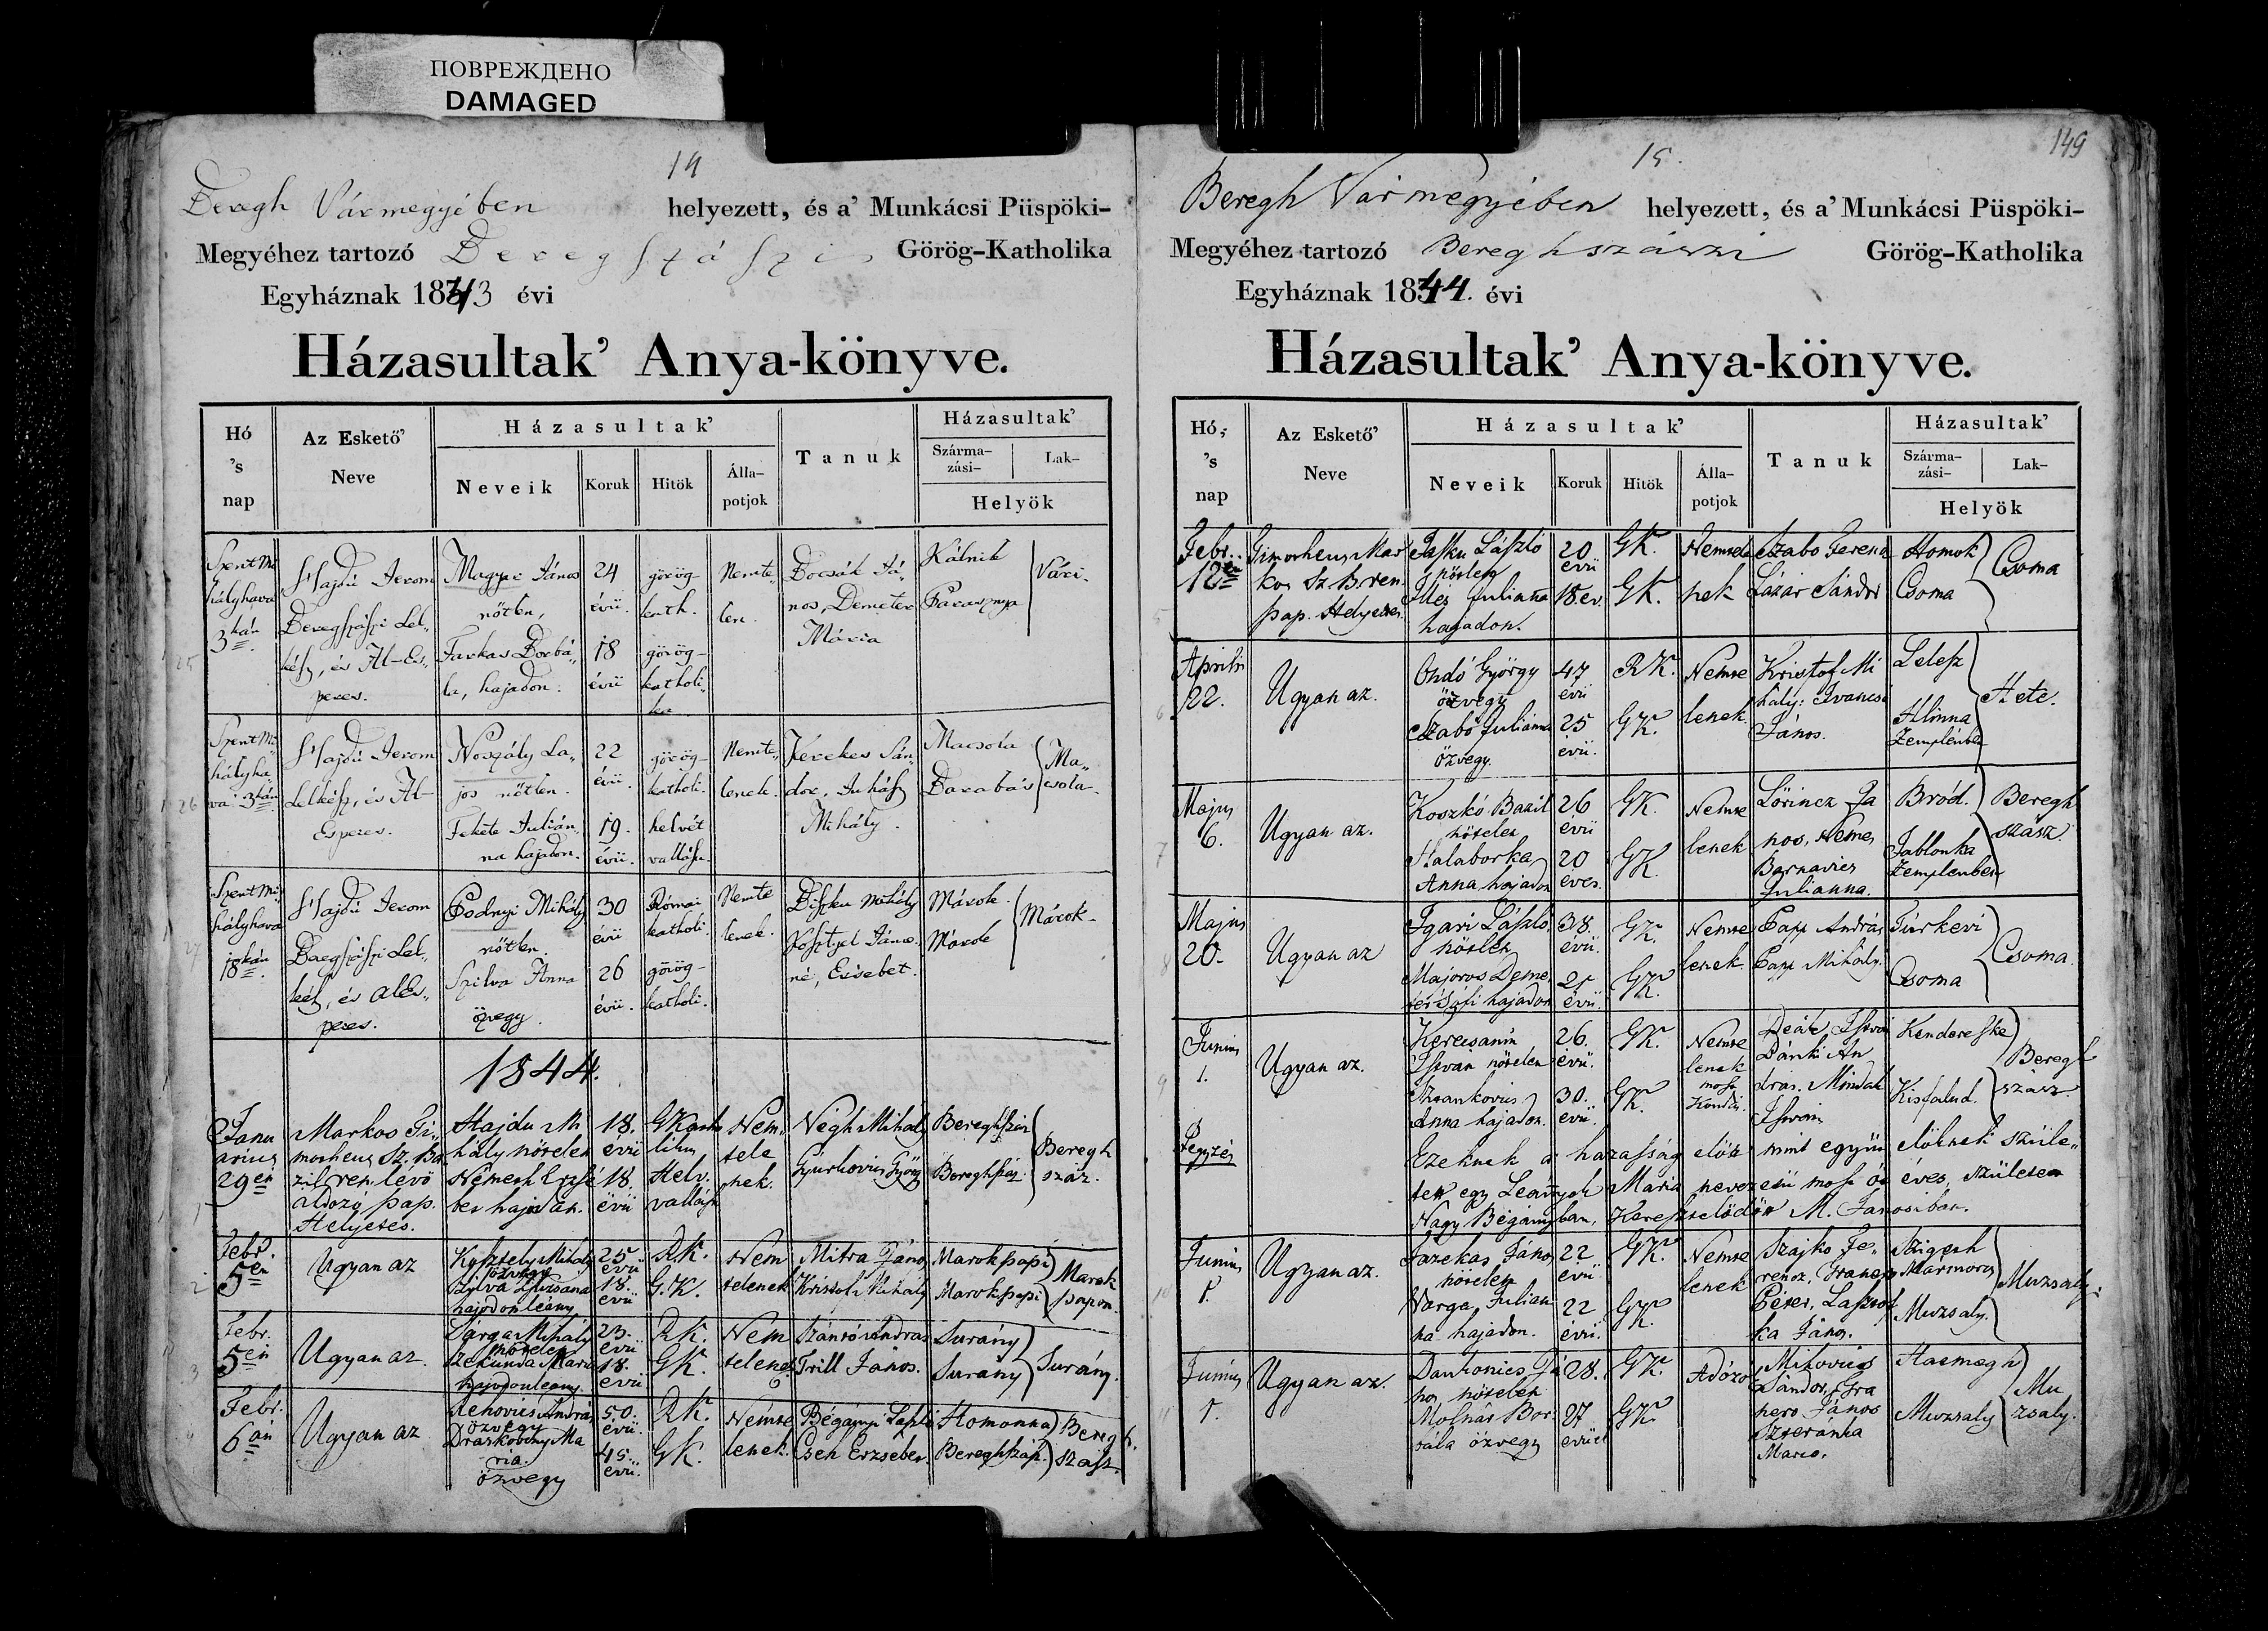 ПОВРЕЖДЕНО
DAMAGED
14
Beregh Vármegyében helyezett, és a' Munkácsi Püspöki-
Megyéhez tartozó Beregszászi Görög-Katholika
Egyháznak 1843 évi
Házasultak' Anya-könyve.
Hó 's nap
Az Eskető' Neve
Házasultak'
Neveik Koruk Hitök Álla-potjok
Tanuk
Házasultak'
Szárma-zási- Lak-
Helyök
Szent Mi-
hályhava
3kán
Hajdú Jerom
Beregszászi Lel-
kész, és Al-Es-
peres.
Magyar János
nőtlen,
Farkas Borbá-
la, hajadon.
24
évü.
18
évü
görög-
kath.
görög-
katholi-
ka
Nemte-
len.
Bocsák Já-
nos, Demeter
Mária
Kálnik
Váci.
25
Szent Mi-
hályha-
va 3kán
Hajdú Jerom
Lelkész, és Al-
Esperes.
Noszály La-
jos nőtlen.
Fekete Julián-
na hajadon.
22
évü
19.
évü.
görög-
katholi.
helvét
vallásu.
Nemte-
lenek.
Kerekes Sán-
dor, Juhász
Mihály.
Macsola
Darabás
Ma-
csola.
26
Szent Mi-
hályhava
18kán
Hajdú Jerom
Beregszászi Lel-
kész, és AlEs-
peres.
Podnyi Mihály
nőtlen
Szilva Anna
özvegy.
30
évü
26
évü.
Római
katholi.
görög-
katholi.
Nemte
lenek.
Mihály
né, Erisebet.
Márok.
Márok
Márok.
27
1844.
Janu
arius
29én
Markos Ti-
motheus Sz. Ba
zil ren. lévö
aldozó pap.
Helyetes.
Hajdu Mi
hály nőtelen
Németh Ersé
bet hajadan.
18.
évü
18.
évü
GKatho
likus
Helv.
vallásu
Nem-
tele
nek.
Végh Mihály
Györkovics György
Bereghszász
Bereghszász.
Beregh
száz.
1
Febr.
5én
Ugyan az
Kosztely Mihály
özvegy
Szilva Zsuzsana
hajadonleány
25
évü
18.
évü
R.K.
G.K.
Nem
telenek
Mitra János
Kristof Mihály
Marokpapi
Marokpapi
Marok
papon.
2
Febr.
5én
Ugyan az.
Varga Mihály
nőtelen
Szekunda Mari
hajadonleany.
23.
évü
18.
evü
R.K.
GK.
Nem
telenek
Szántó András
Trill János.
Surány
Surány
Surány.
3
Febr.
6án
Ugyan az
Rehovics András
özvegy
Draskovtzny Ma
ria.
özvegy
50.
évü.
45.
évü.
RK.
GK.
Nemte
lenek.
Bégányi László
Cseh Erzsebet.
Homonna
Bereghszász.
Beregh.
szász.
4
15.
149
Beregh Vármegyében helyezett, és a' Munkácsi Püspöki-
Megyéhez tartozó Bereghszászi Görög-Katholika
Egyháznak 1844. évi
Házasultak' Anya-könyve.
Hó, 's nap
Az Eskető' Neve
Házasultak'
Neveik Koruk Hitök Álla-potjok
Tanuk
Házasultak'
Szárma-zási- Lak-
Helyök
Febr..
12én
Timotheus Mar
kos Sz. B. ren.
pap. Helyettes.
Pasku László
nőtlen
Illes Julianna
hagadon.
20
évü
18.ev.
GK.
GK.
Nemtele
nek
Szabo Ferenc
Lázár Sándor
Homok
Csoma
Csoma
5
Aprilis
22.
Ugyan az.
Ondó György
özvegy
Szabó Julianna
özvegy.
47
évü
25
évü.
RK.
GK.
Nemte
lenek.
Kristof Mi
haly: Ivancsi
János.
Lelesz
Hlinna
Zemplénbe
Hete.
6
Majus
6.
Ugyan az.
Koszkó Bazil
nőtelen
Halaborka
Anna hajadon
26
évü
20
éves.
GK.
GK.
Nemte
lenek
Lörincz Ja
nos, Nemes
Barnavics
Julianna.
Bród.
Jablonka
Zemplenben
Beregh
szász.
7
Majus
20.
Ugyan az
Igari László
nőtlen
Majoros Deme
ter Sófi hajadon
38.
évü.
25
évü.
GK.
GK.
Nemte
lenek.
Papp András
Papp Mihály.
Túrkevi
Csoma
Csoma.
8
Junius
1.
Ugyan az.
Kerecsanin
István nőtelen
Anna hajadon.
26.
évü.
30.
évü.
GK.
GK.
Nemte
lenek
most
Deák István
Dánki An
drás. Mondok
István
Kendereske
Kisfalud.
Beregh
szász.
9
Jegyzés
Ezeknek a hazasság elött mint együtt élöknek szüle-
tett egy Leányok Mária nevezetü most öt éves, született
Nagy Bégányban, Keresztelödött M. Janosiban.
Junius
1.
Ugyan az.
Fazekas János
nőtelen
Varga Julian
na hajadon.
22
évü
22
évü.
GK.
GK.
Nemte
lenek
Szajko Fe-
rencz, Francz
Péter, Laszlof
ka János.
Szigeth
Marmoros
Muzsaly.
Muzsaly.
10
Junius
1.
Ugyan az.
Dantonics Já
nos nőtelen
Molnár Bor-
bála özvegy
28.
27
evüe
GK.
GK.
Adózo
Mitovics
Sándor, Gra
nero János
Szteránka
Maria.
Harmegh
Muzsaly
Mu
zsaly.
11